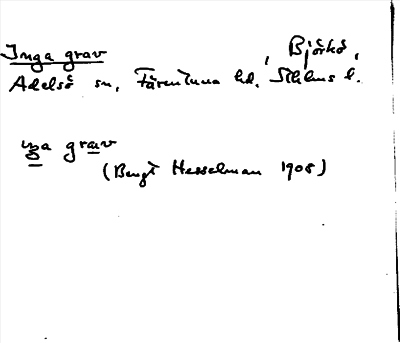 Inga grav , Björkö,
Adelsö sn, Färentuna hd, Sthlms l.
iŋa grav
(Bengt Hesselman 1908)